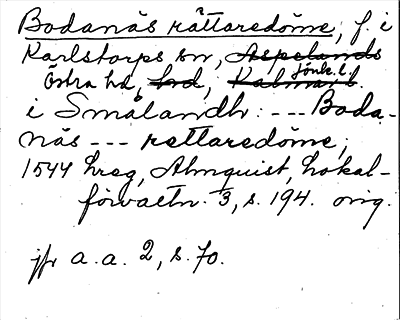 Bodanäs rättaredöme, f. i
Karlstorps sn, Aspelands
Östra hd, hd, Kalmar l. Jönk. l.
i Smålandh: --- Boda-
näs --- rettaredöme;
1544 hreg, Almquist, Lokal-
förvaltn. 3, s. 194. orig.
jfr a.a. 2, s. 70.